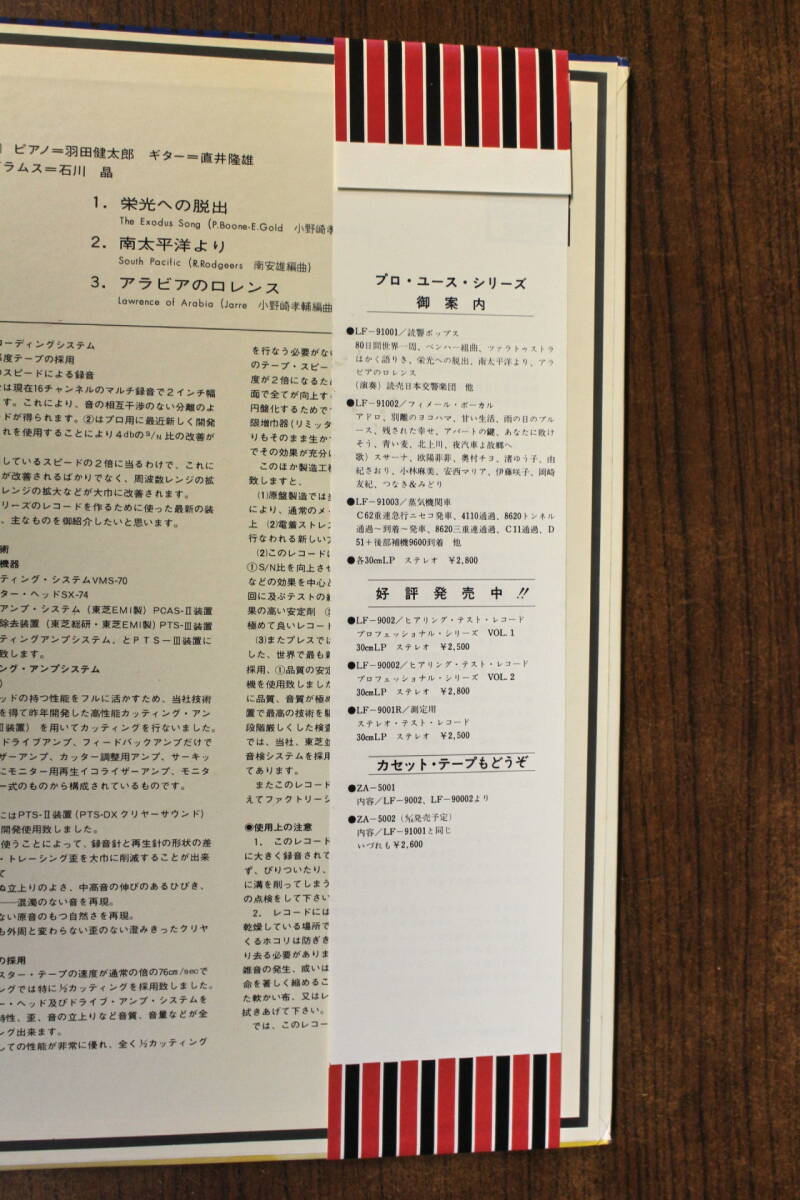 ピアノ＝羽田健太郎　ギター＝直井隆雄
ラムス＝石川　晶
1. 栄光への脱出
The Exodus Song (P.Boone-E.Gold 小野崎孝
2. 南太平洋より
South Pacific (R.Rodgeers 南安雄編曲)
3. アラビアのロレンス
Lawrence of Arabia (Jarre 小野崎孝輔編曲
コーディングシステム
度テープの採用
スピードによる録音
は現在16チャンネルのマルチ録音で2インチ幅
す。これにより、音の相互干渉のない分離のよ
ドが得られます。②はプロ用に最近新しく開発
れを使用することにより4dbのS/N比の改善が
しているスピードの2倍に当るわけで、これに
が改善されるばかりでなく、周波数レンジの拡
レンジの拡大などが大巾に改善されます。
リーズのレコードを作るために使った最新の装
、主なものを御紹介したいと思います。
術
機器
ティング・システムVMS-70
ター・ヘッドSX-74
アンプ・システム（東芝EMI製）PCAS-Ⅱ装置
除去装置（東芝総研・東芝EMI製）PTS-Ⅲ装置
ティングアンプシステム、とPTS−Ⅲ装置に
致します。
ング・アンプシステム
ッドの持つ性能をフルに活かすため、当社技術
を得て昨年開発した高性能カッティング・アン
Ⅱ装置）を用いてカッティングを行ないました。
ドライブアンプ、フィードバックアンプだけで
ザーアンプ、カッター調整用アンプ、サーキッ
にモニター用再生イコライザーアンプ、モニタ
一式のものから構成されているものです。
にはPTS-Ⅱ装置（PTS-DXクリヤーサウンド）
開発使用致しました。
使うことによって、録音針と再生針の形状の差
・トレーシング歪を大巾に削減することが出来
て
ぬ立上りのよさ、中高音の伸びのあるひびき、
――混濁のない音を再現。
ない原音のもつ自然さを再現。
も外周と変わらない歪のない澄みきったクリヤ
の採用
スター・テープの速度が通常の倍の76cm/secで
ングでは特に½カッティングを採用致しました。
ー・ヘッド及びドライブ・アンプ・システムを
特性、歪、音の立上りなど音質、音量などが全
ング出来ます。
しての性能が非常に優れ、全く½カッティング
を行なう必要がな
のテープ・スピー
度が2倍になるた
面で全てが向上す
円盤化するためで
限増巾器(リミッタ
りもそのまま生か
でその効果が充分に
このほか製造工
致しますと、
(1)原盤製造では
により、通常のメ
上 ②電着ストレス
行なわれる新しい
(2)このレコードに
①S/N比を向上させ
などの効果を中心と
回に及ぶテストの
果の高い安定剤
極めて良いレコード
(3)またプレスでは
した、世界で最も
採用、①品質の安定
機を使用致しました
に品質、音質が極め
置で最高の技術を
段階厳しくした検査
では、当社、東芝
音検システムを採用
てあります。
またこのレコード
えてファクトリーシ
◉使用上の注意
1. このレコード
に大きく録音されて
ず、びりついたり、
に溝を削ってしまう
の点検をして下さい
2. レコードには
乾燥している場所で
くるホコリは防ぎき
り去る必要がありま
雑音の発生、或いは
命を著しく縮めるこ
た軟かい布、又はレ
拭きあげて下さい。
では、このレコー
プロ・ユース・シリーズ
御案内
●LF−91001／読響ポップス
80日間世界一周、ベンハー組曲、ツァラトゥストラ
はかく語りき、栄光への脱出、南太平洋より、アラ
ビアのロレンス
(演奏) 読売日本交響楽団　他
●LF−91002／フィメール・ボーカル
アドロ、別離のヨコハマ、甘い生活、雨の日のブル
ース、残された幸せ、アパートの鍵、あなたに賭け
そう、青い麦、北上川、夜汽車よ故郷へ
歌）スサーナ、欧陽菲菲、奥村チヨ、渚ゆう子、由
紀さおり、小林麻美、安西マリア、伊藤咲子、岡崎
友紀、つなき&みどり
●LF−91003／蒸気機関車
C62重連急行ニセコ発車、4110通過、8620トンネル
通過〜到着〜発車、8620三重連通過、C11通過、D
51＋後部補機9600到着　他
●各30cmLP　ステレオ　￥2,800
好評発売中!!
●LF−9002／ヒアリング・テスト・レコード
プロフェッショナル・シリーズ　VOL.1
30cmLP　ステレオ　￥2,500
●LF−90002／ヒアリング・テスト・レコード
プロフェッショナル・シリーズ　VOL.2
30cmLP　ステレオ　￥2,800
●LF−9001R／測定用
ステレオ・テスト・レコード
30cmLP　ステレオ　￥2,500
カセット・テープもどうぞ
●ZA−5001
内容／LF−9002、LF−90002より
●ZA−5002（発売予定）
内容／LF−91001と同じ
いづれも￥2,600